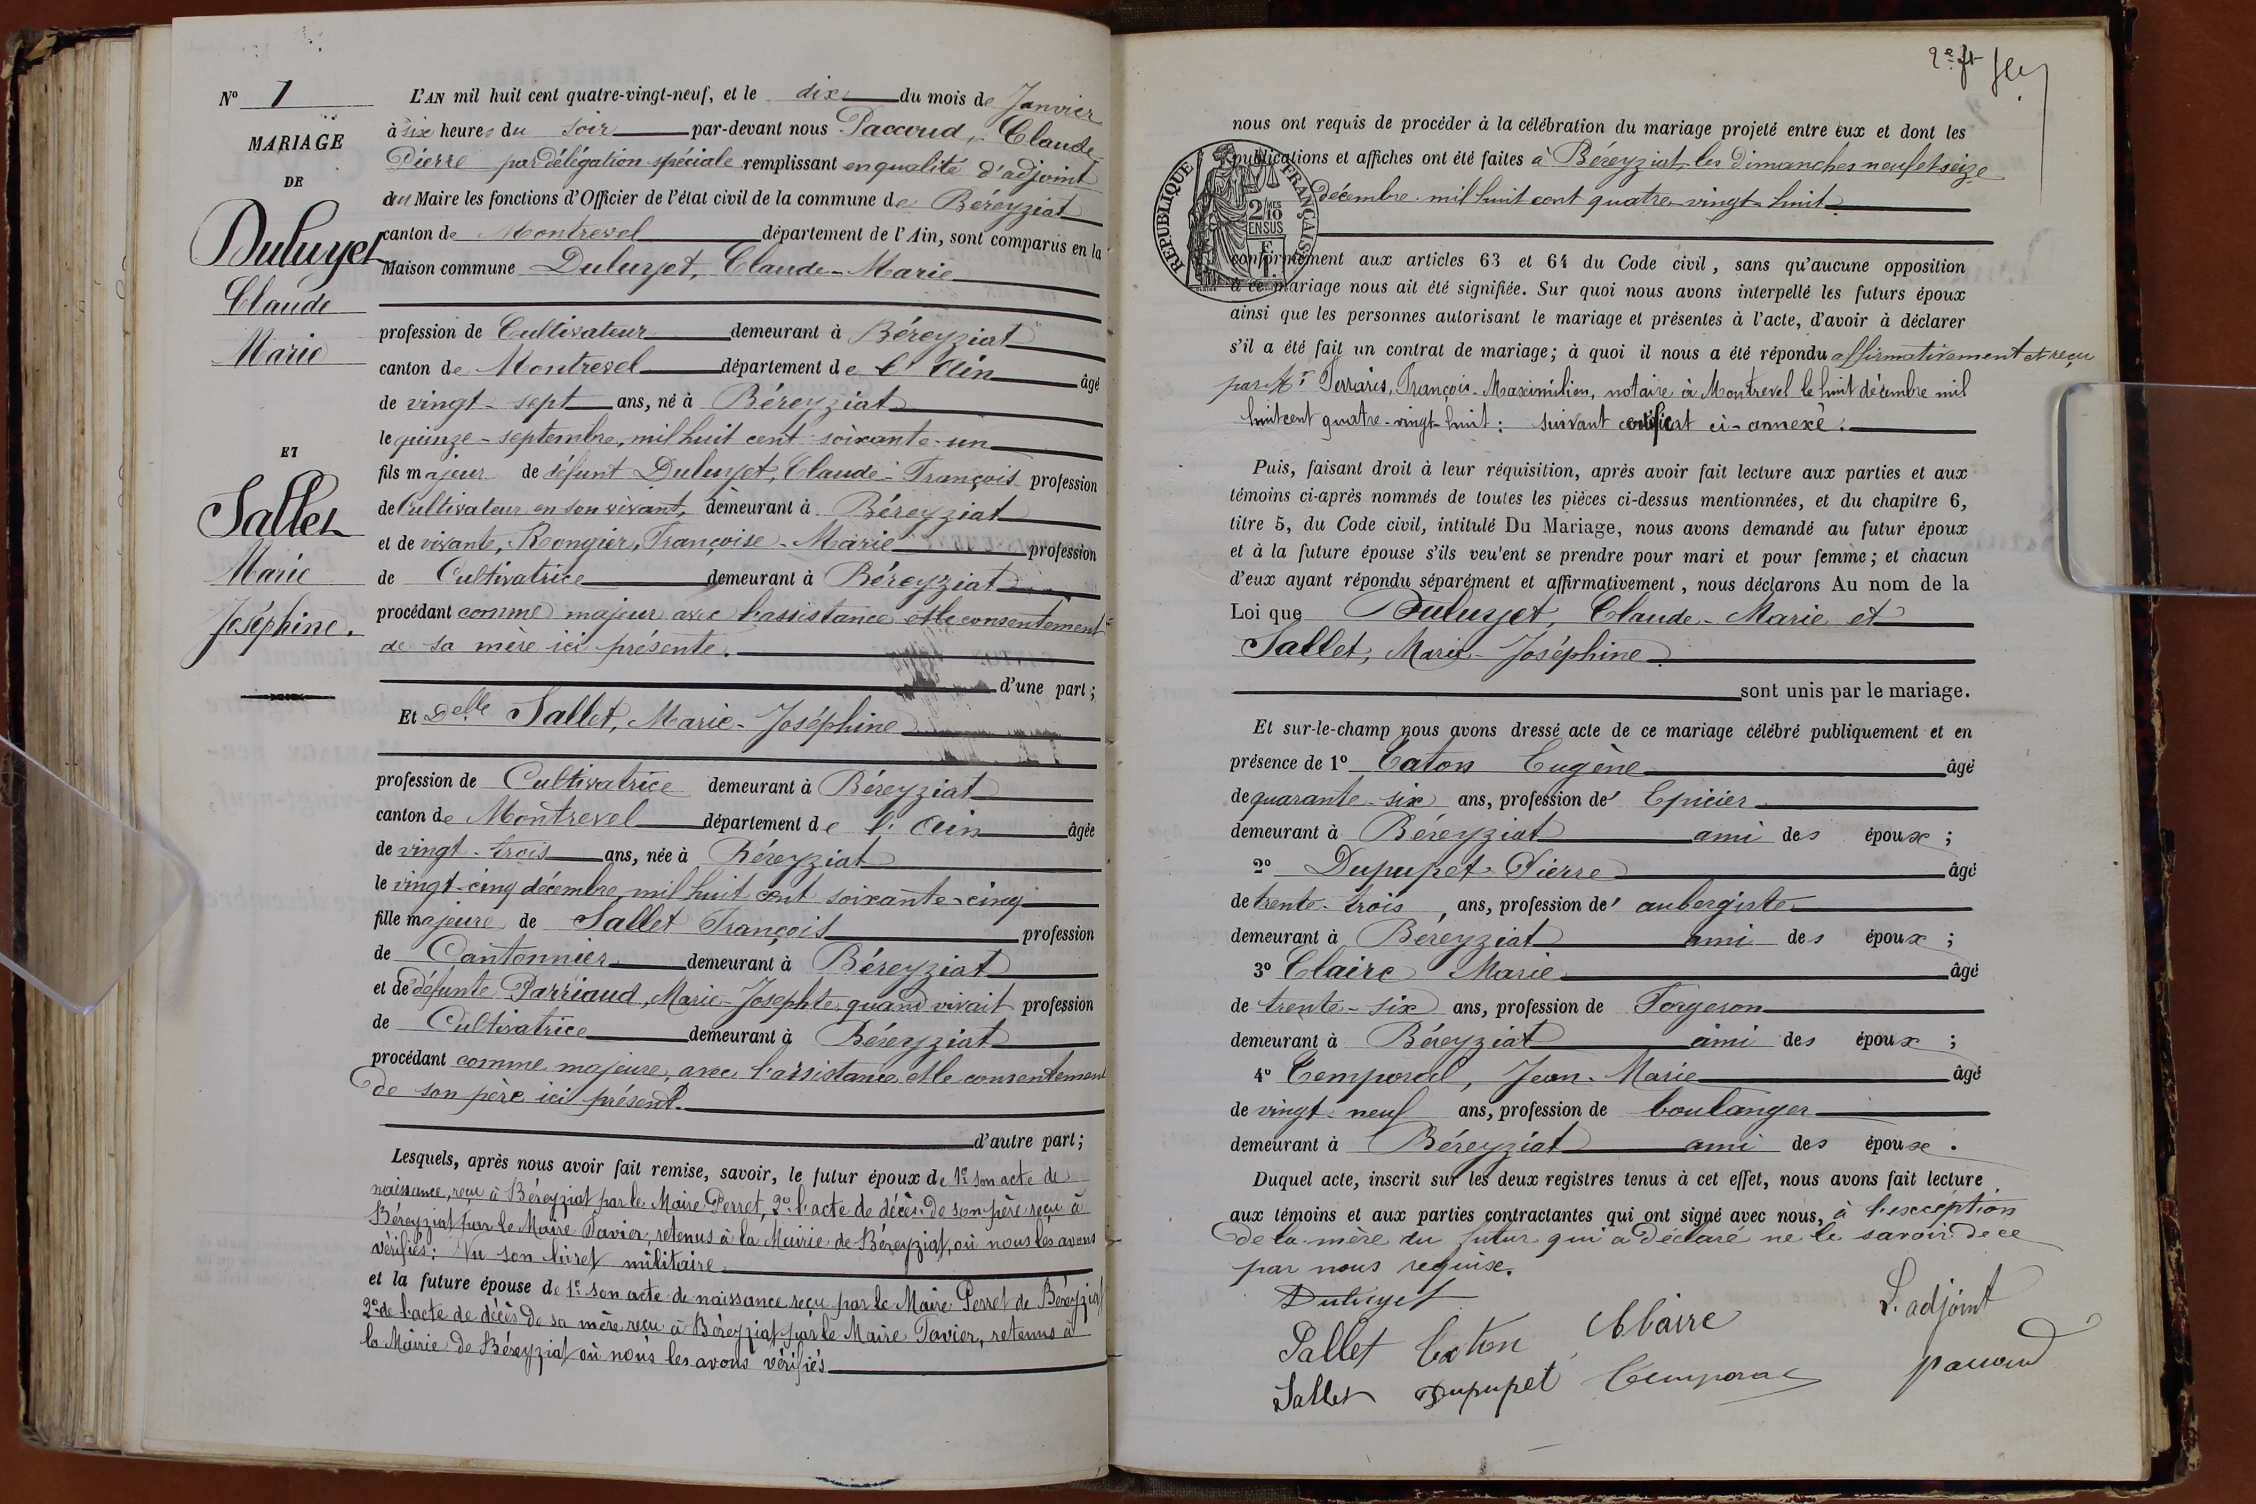 N° 1
MARIAGE
DE
Duluyet
Claude
Marie
ET
Sallet
Marie
Joséphine.
L'AN mil huit cent quatre-vingt-neuf, et le dix du mois de Janvier
à six heures du soir par-devant nous Paccoud, Claude
Pierre par délégation spéciale remplissant en qualité d'adjoint
au Maire les fonctions d'Officier de l'état civil de la commune de Béreyziat
canton de Montrevel département de l'Ain, sont comparus en la
Maison commune Duluyet, Claude-Marie
profession de Cultivateur demeurant à Béreyziat
canton de Montrevel département de l'Ain âgé
de vingt-sept ans, né à Béreyziat
le quinze-septembre, mil huit cent soixante-un
fils majeur de défunt Duluyet, Claude-François profession
de Cultivateur en son vivant, demeurant à Béreyziat
et de vivante, Rongier, Françoise-Marie profession
de Cultivatrice demeurant à Béreyziat
procédant comme majeur avec l'assistance et le consentement
de sa mère ici présente.
d'une part;
Et Delle Sallet, Marie-Joséphine
profession de Cultivatrice demeurant à Béreyziat
canton de Montrevel département de l'Ain âgée
de vingt-trois ans, née à Béreyziat
le vingt-cinq décembre mil huit cent soixante-cinq
fille majeure de Sallet François profession
de Cantonnier demeurant à Béreyziat
et de défunte Parriaud, Marie-Josephte quand vivait profession
de Cultivatrice demeurant à Béreyziat
procédant comme majeure, avec l'assistance et le consentement
de son père ici présent.
d'autre part;
Lesquels, après nous avoir fait remise, savoir, le futur époux de 1° son acte de
naissance, reçu à Béreyziat par le Maire Perret, 2° l'acte de décès de son père reçu à
Béreyziat par le Maire Tavier, retenus à la Mairie de Béreyziat, où nous les avons
vérifiés. Vu son livret militaire
et la future épouse de 1° son acte de naissance reçu par le Maire Perret de Béreyziat
2° de l'acte de décès de sa mère reçu à Béreyziat par le Maire Tavier, retenus à
la Mairie de Béreyziat où nous les avons vérifiés
2e ft
RÉPUBLIQUE FRANÇAISE
2/10 MES
EN SUS
nous ont requis de procéder à la célébration du mariage projeté entre eux et dont les
publications et affiches ont été faites à Béreyziat, les dimanches neuf et seize
décembre mil huit cent quatre-vingt-huit
conformément aux articles 63 et 64 du Code civil, sans qu'aucune opposition
à ce mariage nous ait été signifiée. Sur quoi nous avons interpellé les futurs époux
ainsi que les personnes autorisant le mariage et présentes à l'acte, d'avoir à déclarer
s'il a été fait un contrat de mariage; à quoi il nous a été répondu affirmativement et reçu
par Mr Ferraris, François-Maximilien, notaire à Montrevel le huit décembre mil
huit cent quatre-vingt-huit: suivant certificat ci-annexé.
Puis, faisant droit à leur réquisition, après avoir fait lecture aux parties et aux
témoins ci-après nommés de toutes les pièces ci-dessus mentionnées, et du chapitre 6,
titre 5, du Code civil, intitulé Du Mariage, nous avons demandé au futur époux
et à la future épouse s'ils veu'ent se prendre pour mari et pour femme; et chacun
d'eux ayant répondu séparément et affirmativement, nous déclarons Au nom de la
Loi que Duluyet, Claude-Marie et
Sallet, Marie-Joséphine
sont unis par le mariage.
Et sur-le-champ nous avons dressé acte de ce mariage célébré publiquement et en
présence de 1° Caton Eugène âgé
de quarante-six ans, profession de Epicier
demeurant à Béreyziat ami des époux;
2° Dupupet Pierre âgé
de trente-trois, ans, profession de aubergiste
demeurant à Béreyziat ami des époux;
3° Claire Marie âgé
de trente-six ans, profession de Forgeron
demeurant à Béreyziat ami des époux;
4° Temporal, Jean-Marie âgé
de vingt-neuf ans, profession de boulanger
demeurant à Béreyziat ami des époux.
Duquel acte, inscrit sur les deux registres tenus à cet effet, nous avons fait lecture
aux témoins et aux parties contractantes qui ont signé avec nous, à l'exception
de la mère du futur qui a déclaré ne le savoir de ce
par nous requise.
Duluyet
Sallet Caton Claire L'adjoint
Sallet Dupupet Temporal paccoud